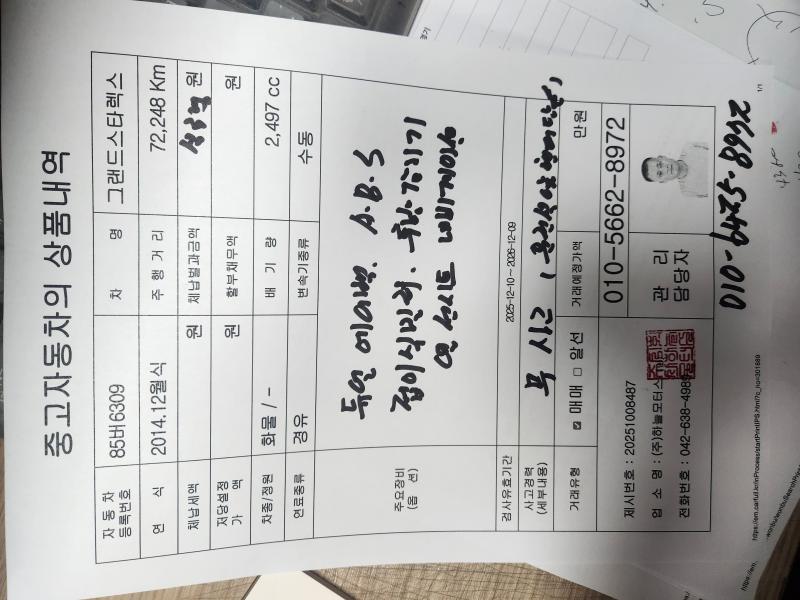 중고자동차의 상품내역
자동차 등록번호 85버6309 차 명 그랜드스타렉스
연 식 2014.12월식 주 행 거 리 72,248 Km
체납세액 원 체납벌과금액 원
저당설정 가 액 원 할부채무액 원
차종/정원 화물 / - 배 기 량 2,497 cc
연료종류 경유 변속기종류 수동
주요장비 (옵 션)
듀얼 에어백. A.B.S
접이식밀러. 후방감지기
열선시트 네비게이션
검사유효기간 2025-12-10 ~ 2026-12-09
사고경력 (세부내용) 무 사고
거래유형 ☑ 매매 □ 알선 거래예정가액 만원
제시번호 : 20251008487
업 소 명 : (주)하늘모터스
전화번호 : 042-638-498
관 리 담당자
010-5662-8972
010-6425-8952
1/1